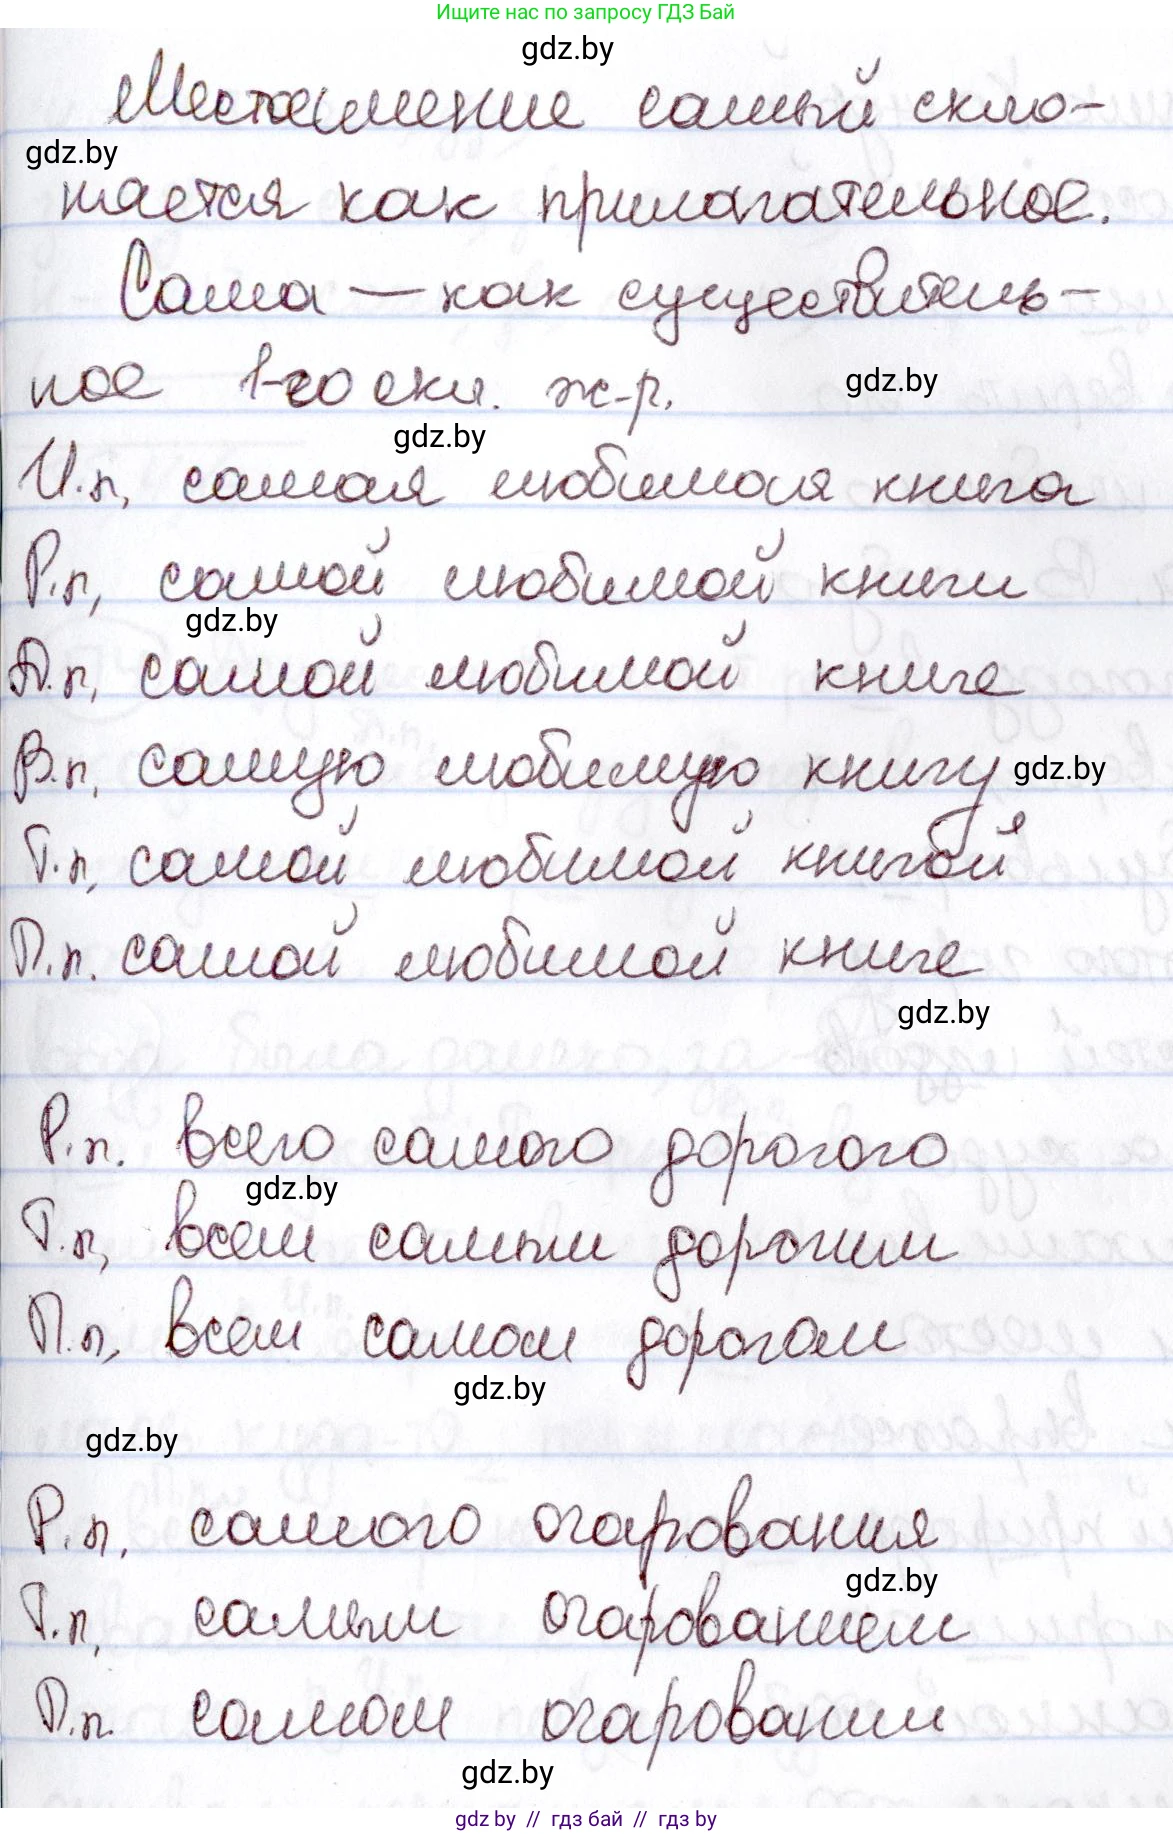 Ищите нас по запросу ГДЗ Бай
gdz.by
Местоимение самый скло-
gdz.by
няется как прилагательное.
Сама — как существитель-
ное 1-го скл. ж.р.
gdz.by
gdz.by
И.п. самая любимая книга
Р.п. самой любимой книги
gdz.by
Д.п. самой любимой книге
В.п. самую любимую книгу
gdz.by
Т.п. самой любимой книгой
П.п. самой любимой книге
gdz.by
Р.п. всего самого дорогого
gdz.by
Т.п. всем самым дорогим
П.п. всем самом дорогом
gdz.by
gdz.by
Р.п. самого очарования
gdz.by
Т.п. самым очарованием
П.п. самом очаровании
gdz.by
gdz by // гдз бай // гдз by